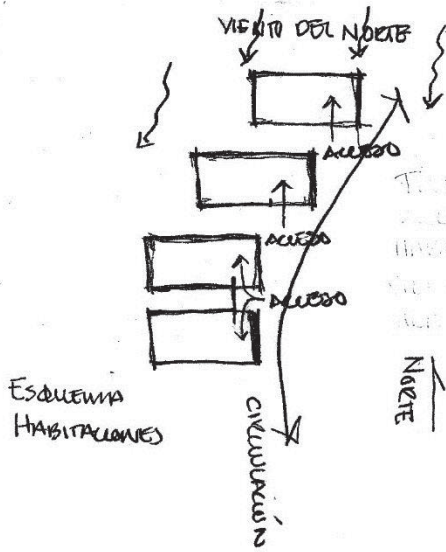 VIENTO DEL NORTE
ACCESO
ACCESO
ACCESO
NORTE
ESQUEMA
HABITACIONES
CIRCULACIÓN